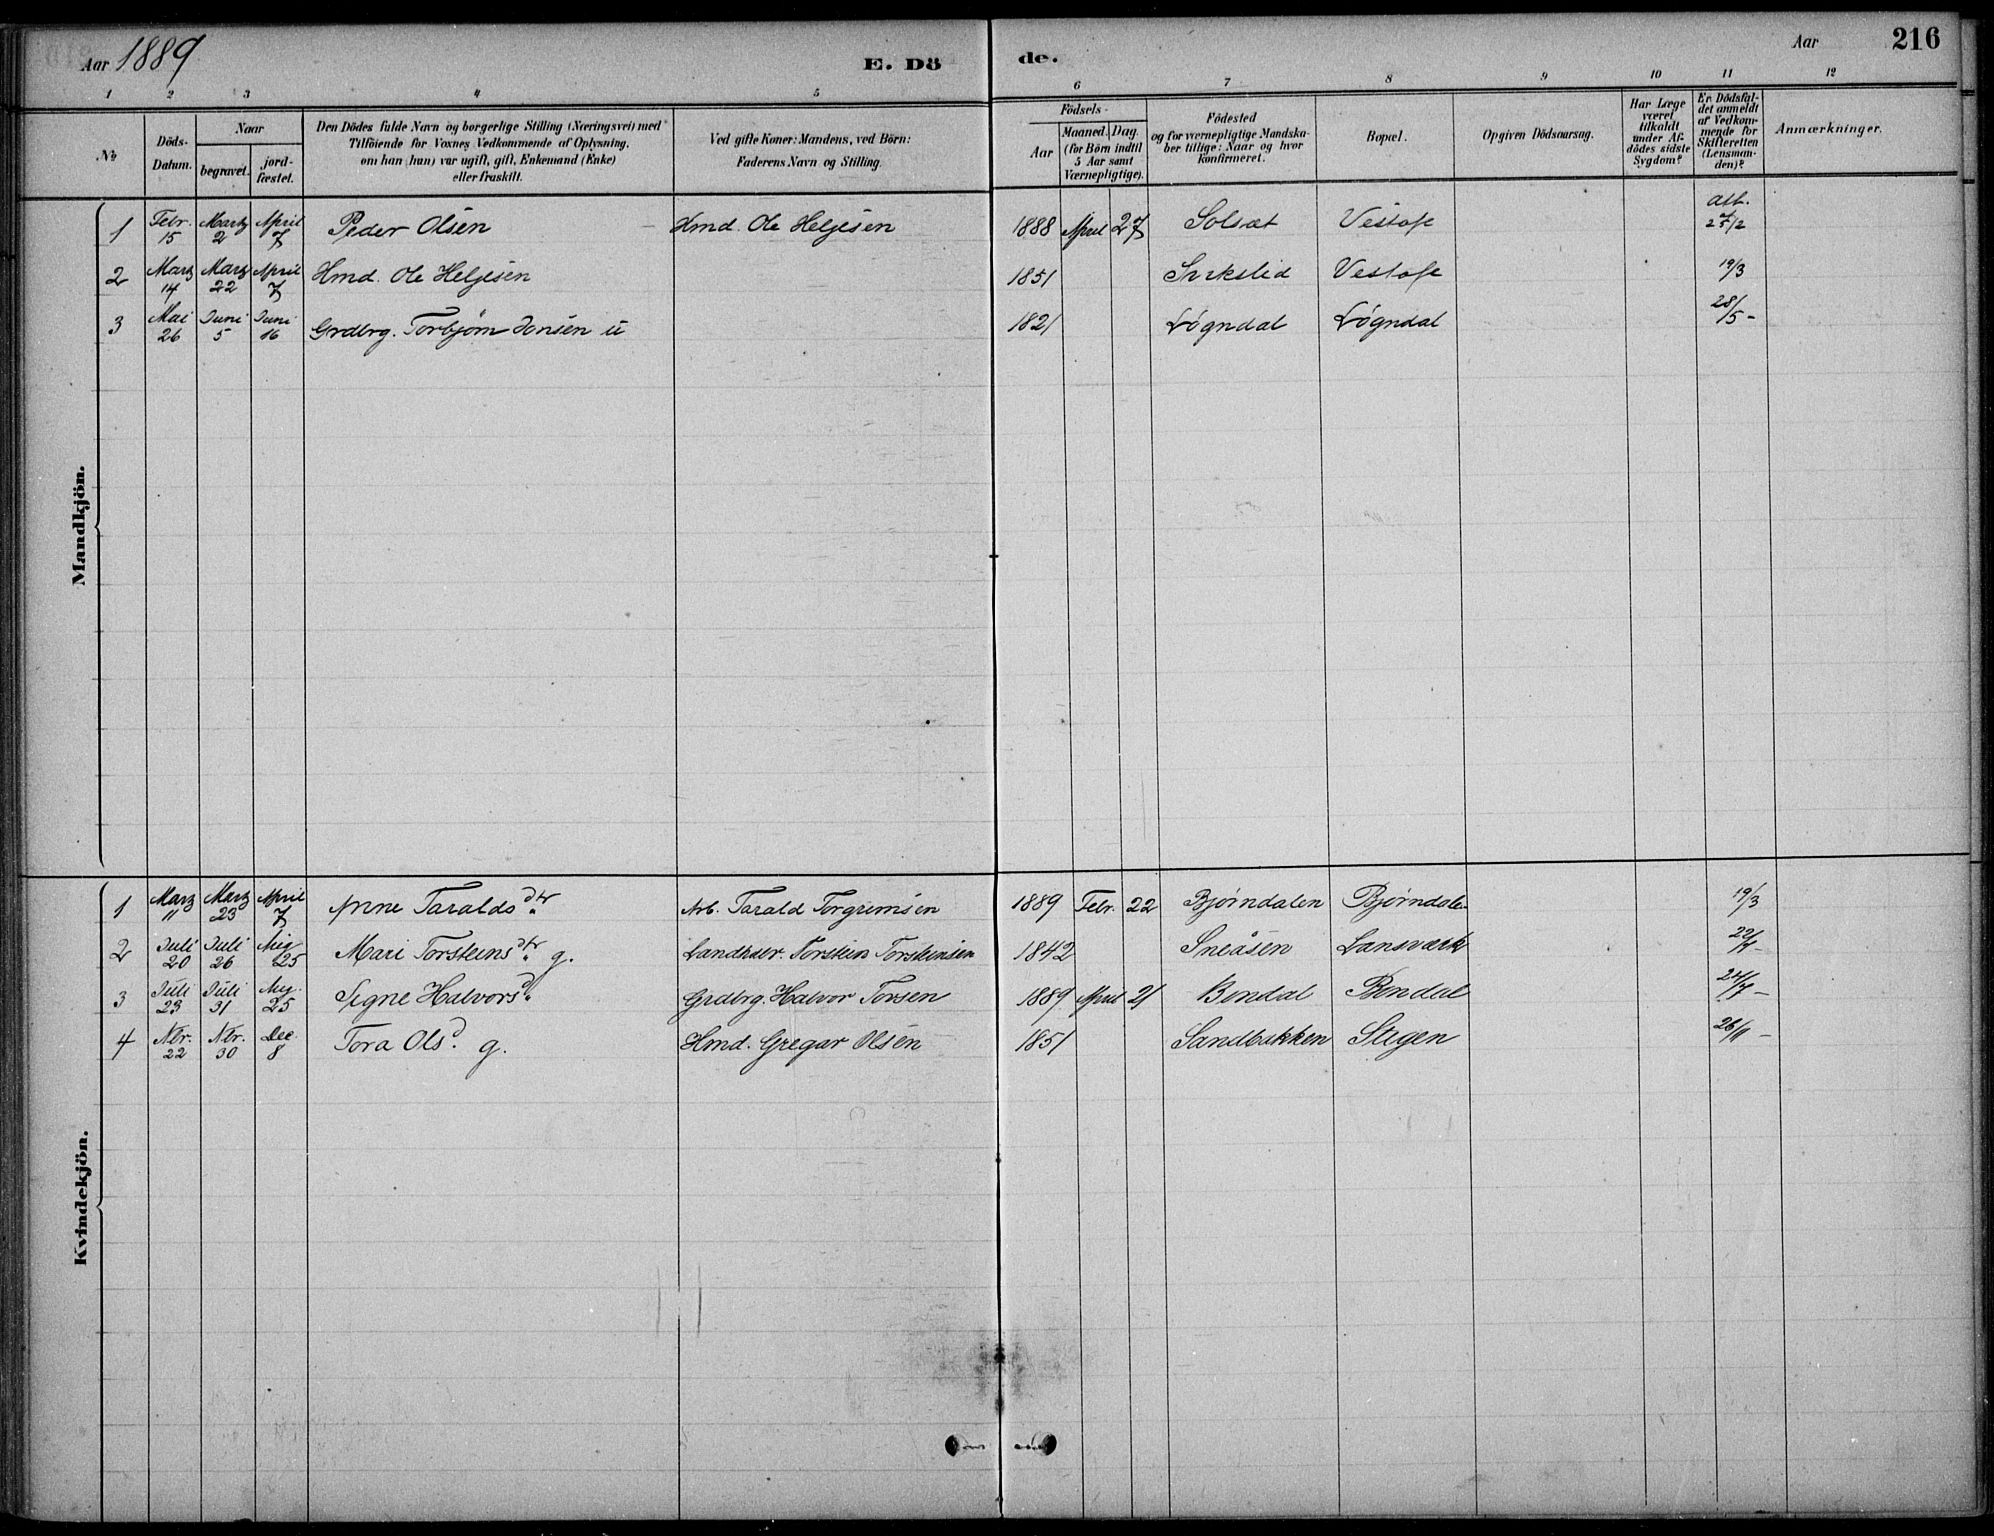 Aar 1889 E. Dö de. Aar 216
1 2 3 4 5 6 7 8 9 10 11 12
No
Döds-
Datum.
Naar
begravet.
jord-
fæstet.
Den Dödes fulde Navn og borgerlige Stilling (Næringsvei) med
Tilföiende for Voxnes Vedkommende af Oplysning,
om han (hun) var ugift, gift, Enkemand (Enke)
eller fraskilt.
Ved gifte Koner: Mandens, ved Börn:
Faderens Navn og Stilling.
Födsels-
Aar
Maaned. Dag.
(for Börn indtil
5 Aar samt
Værnepligtige).
Födested
og for værnepligtige Mandska-
ber tillige: Naar og hvor
Konfirmeret.
Bopæl.
Opgiven Dödsaarsag.
Har Læge
været
tilkaldt
under Af-
dödes sidste
Sygdom?
Er Dödsfal-
det anmeldt
af Vedkom-
mende for
Skifteretten
(Lensman-
den)?
Anmærkninger.
Mandkjön.
1 Febr. 15 Marts 2 April 7 Peder Olsen Hmd. Ole Heljesen 1888 April 27 Solsæt Vestofe att. 25/2
2 Marz 14 Marz 22 April 7 Hmd. Ole Heljesen 1851 Vestofe 19/3
3 Mai 26 Juni 5 Juni 16 Grdbrg. Torbjørn Jonsen u 1821 Løgndal Løgndal 28/5 -
Kvindekjön.
1 Marz 11 Marz 23 April 7 Anne Taraldsdtr Arb. Tarald Torgrimsen 1889 Febr. 22 Bjørndalen Bjørndale 19/3
2 Juli 20 Juli 26 Aug 25 Mari Torsteinsdtr g. Torstein Torsteinsen 1842 Sneåsen Lansværk 22/7 -
3 Juli 23 Juli 31 Aug. 25 Signe Halvorsd. Grdbrg. Halvor Torsen 1889 April 21 Bondal Bondal 24/7 -
4 Nbr. 22 Nbr. 30 Dec. 8 Tora Olsd. g. Hmd. Gregar Olsen 1851 Sandbakken Stigen 26/11 -